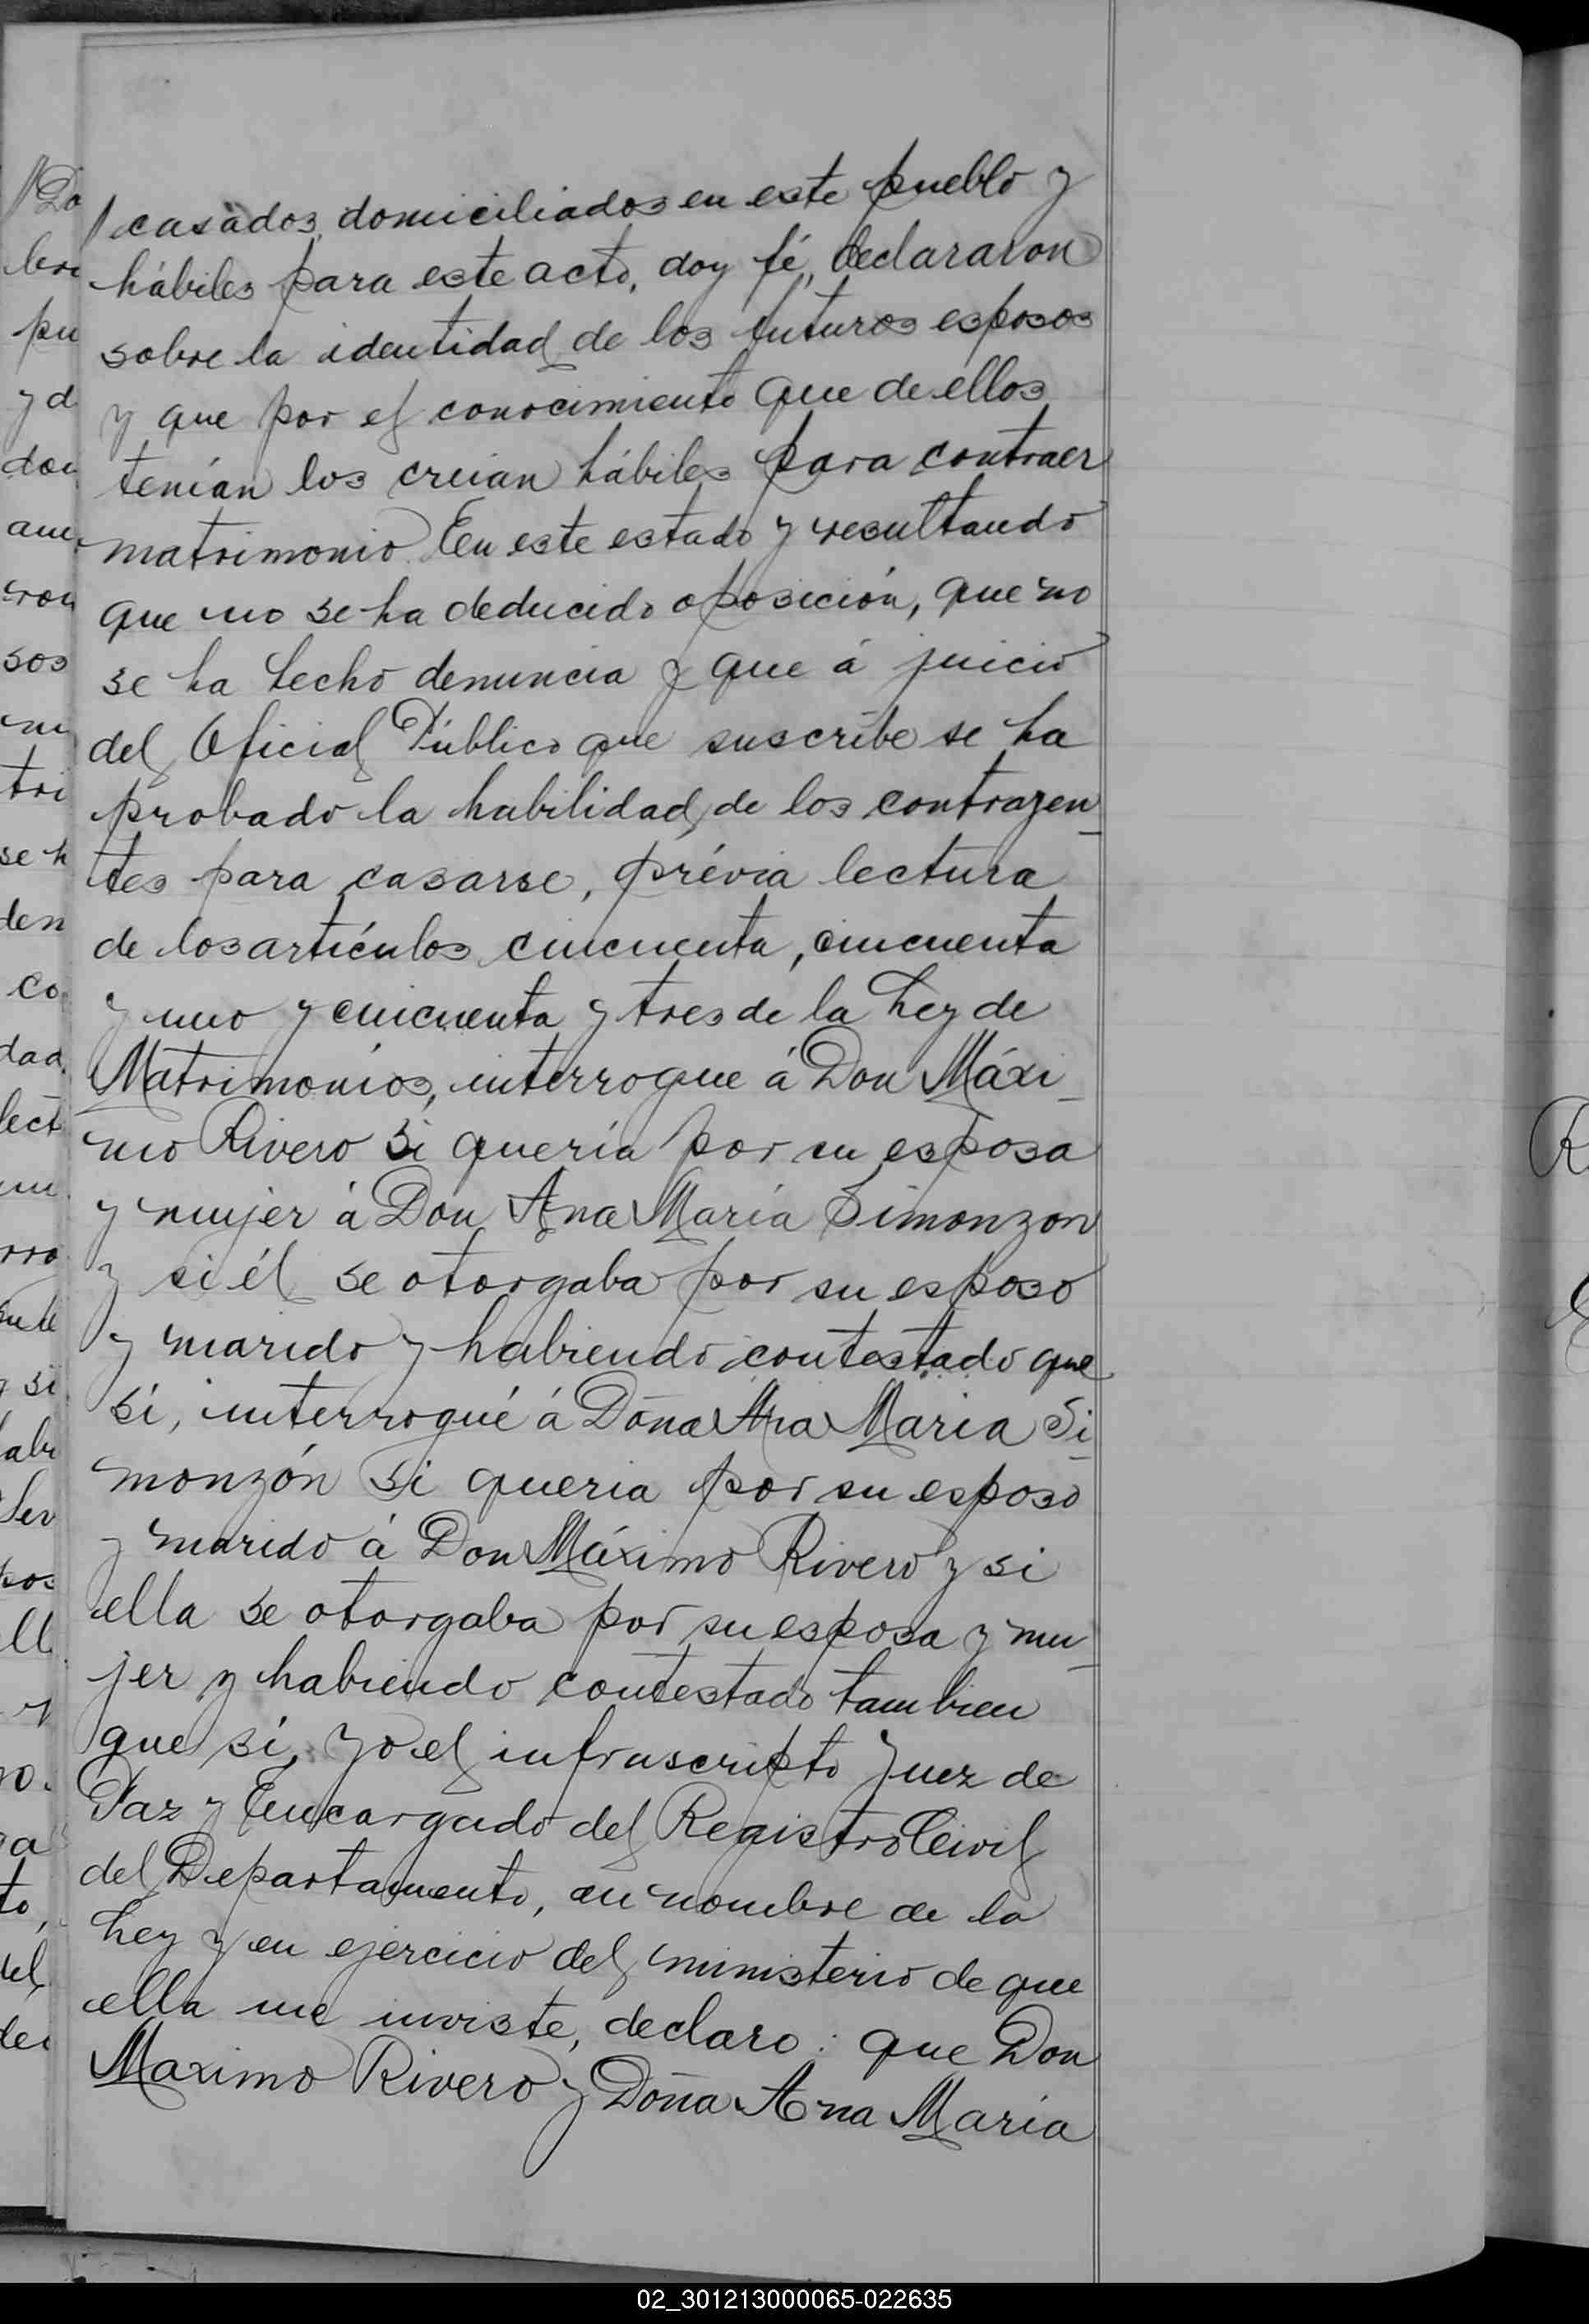 casados, domiciliados en este pueblo y
hábiles para este acto, doy fé, declararon
sobre la identidad de los futuros esposos
y que por el conocimiento que de ellos
tenían los creian hábiles para contraer
matrimonio. En este estado y resultando
que no se ha deducido oposición, que no
se ha hecho denuncia y que á juicio
del Oficial Público que suscribe se ha
probado la habilidad de los contrayen_
tes para casarse, prévia lectura
de los artículos cincuenta, cincuenta
y uno y cincuenta y tres de la Ley de
Matrimonios, interrogue á Don Máxi_
mo Rivero si quería por su esposa
y mujer á Don Ana María Simonzon
y si él se otorgaba por su esposo
y marido y habiendo contestado que
sí, interrogué á Doña Ana Maria Si_
monzón si queria por su esposo
y marido á Don Máximo Rivero y si
ella se otorgaba por su esposa y mu_
jer y habiendo contestado tambien
que sí, yo el infrascripto Juez de
Paz y Encargado del Registro Civil
del Departamento, en nombre de la
Ley y en ejercicio del ministerio de que
ella me inviste, declaro: que Don
Maximo Rivero y Doña Ana Maria
02_301213000065-022635